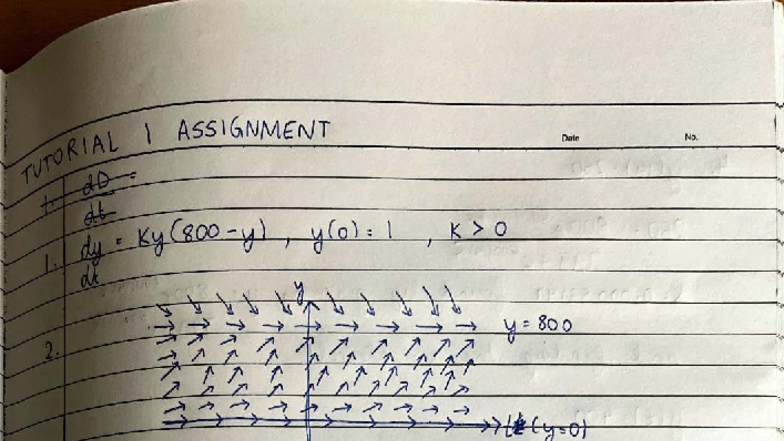 TUTORIAL 1 ASSIGNMENT
Date No.
1. dD =
dt
1. dy/dt = Ky(800-y) , y(0) = 1 , K > 0
y
y = 800
2.
t (y=0)